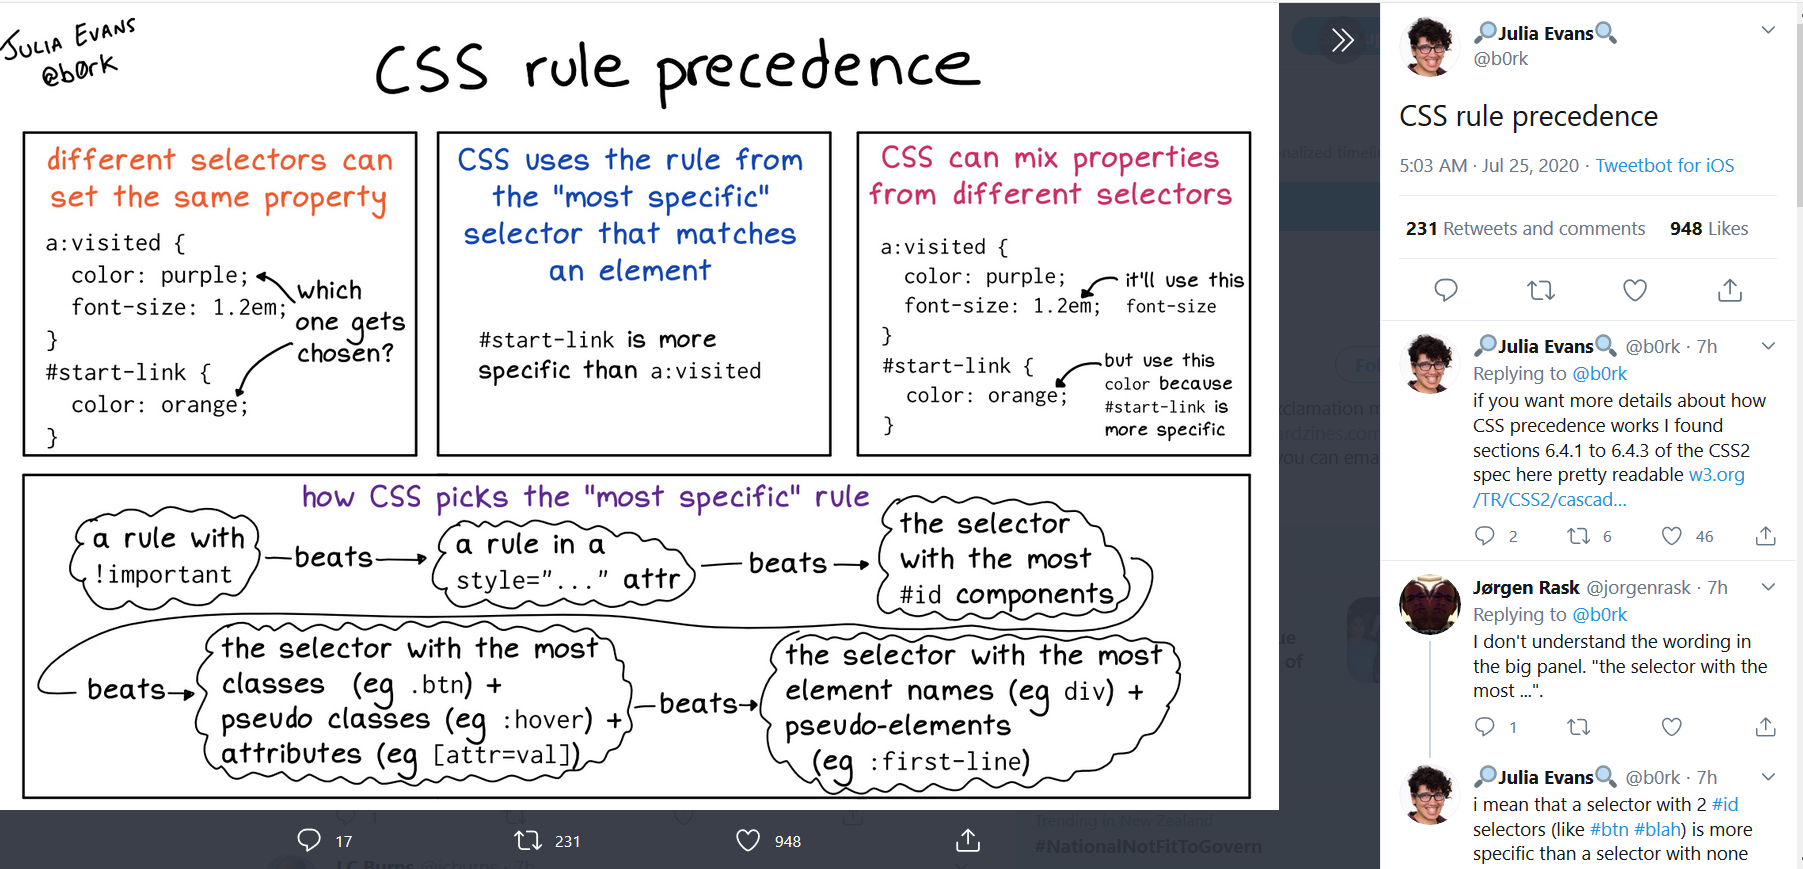 JULIA EVANS
@b0rk
CSS rule precedence
different selectors can
set the same property
a:visited {
color: purple;
font-size: 1.2em;
}
#start-link {
color: orange;
}
which
one gets
chosen?
CSS uses the rule from
the "most specific"
selector that matches
an element
#start-link is more
specific than a:visited
CSS can mix properties
from different selectors
a:visited {
color: purple;
font-size: 1.2em;
}
#start-link {
color: orange;
}
it'll use this
font-size
but use this
color because
#start-link is
more specific
how CSS picks the "most specific" rule
a rule with
!important
beats
a rule in a
style="..." attr
beats
the selector
with the most
#id components
beats
the selector with the most
classes (eg .btn) +
pseudo classes (eg :hover) +
attributes (eg [attr=val])
beats
the selector with the most
element names (eg div) +
pseudo-elements
(eg :first-line)
17
231
948
Trending in New Zealand
#NationalNotFitToGovern
Julia Evans
@b0rk
CSS rule precedence
5:03 AM · Jul 25, 2020 · Tweetbot for iOS
231 Retweets and comments 948 Likes
Julia Evans @b0rk · 7h
Replying to @b0rk
if you want more details about how
CSS precedence works I found
sections 6.4.1 to 6.4.3 of the CSS2
spec here pretty readable w3.org
/TR/CSS2/cascad...
2 6 46
Jørgen Rask @jorgenrask · 7h
Replying to @b0rk
I don't understand the wording in
the big panel. "the selector with the
most ...".
1
Julia Evans @b0rk · 7h
i mean that a selector with 2 #id
selectors (like #btn #blah) is more
specific than a selector with none